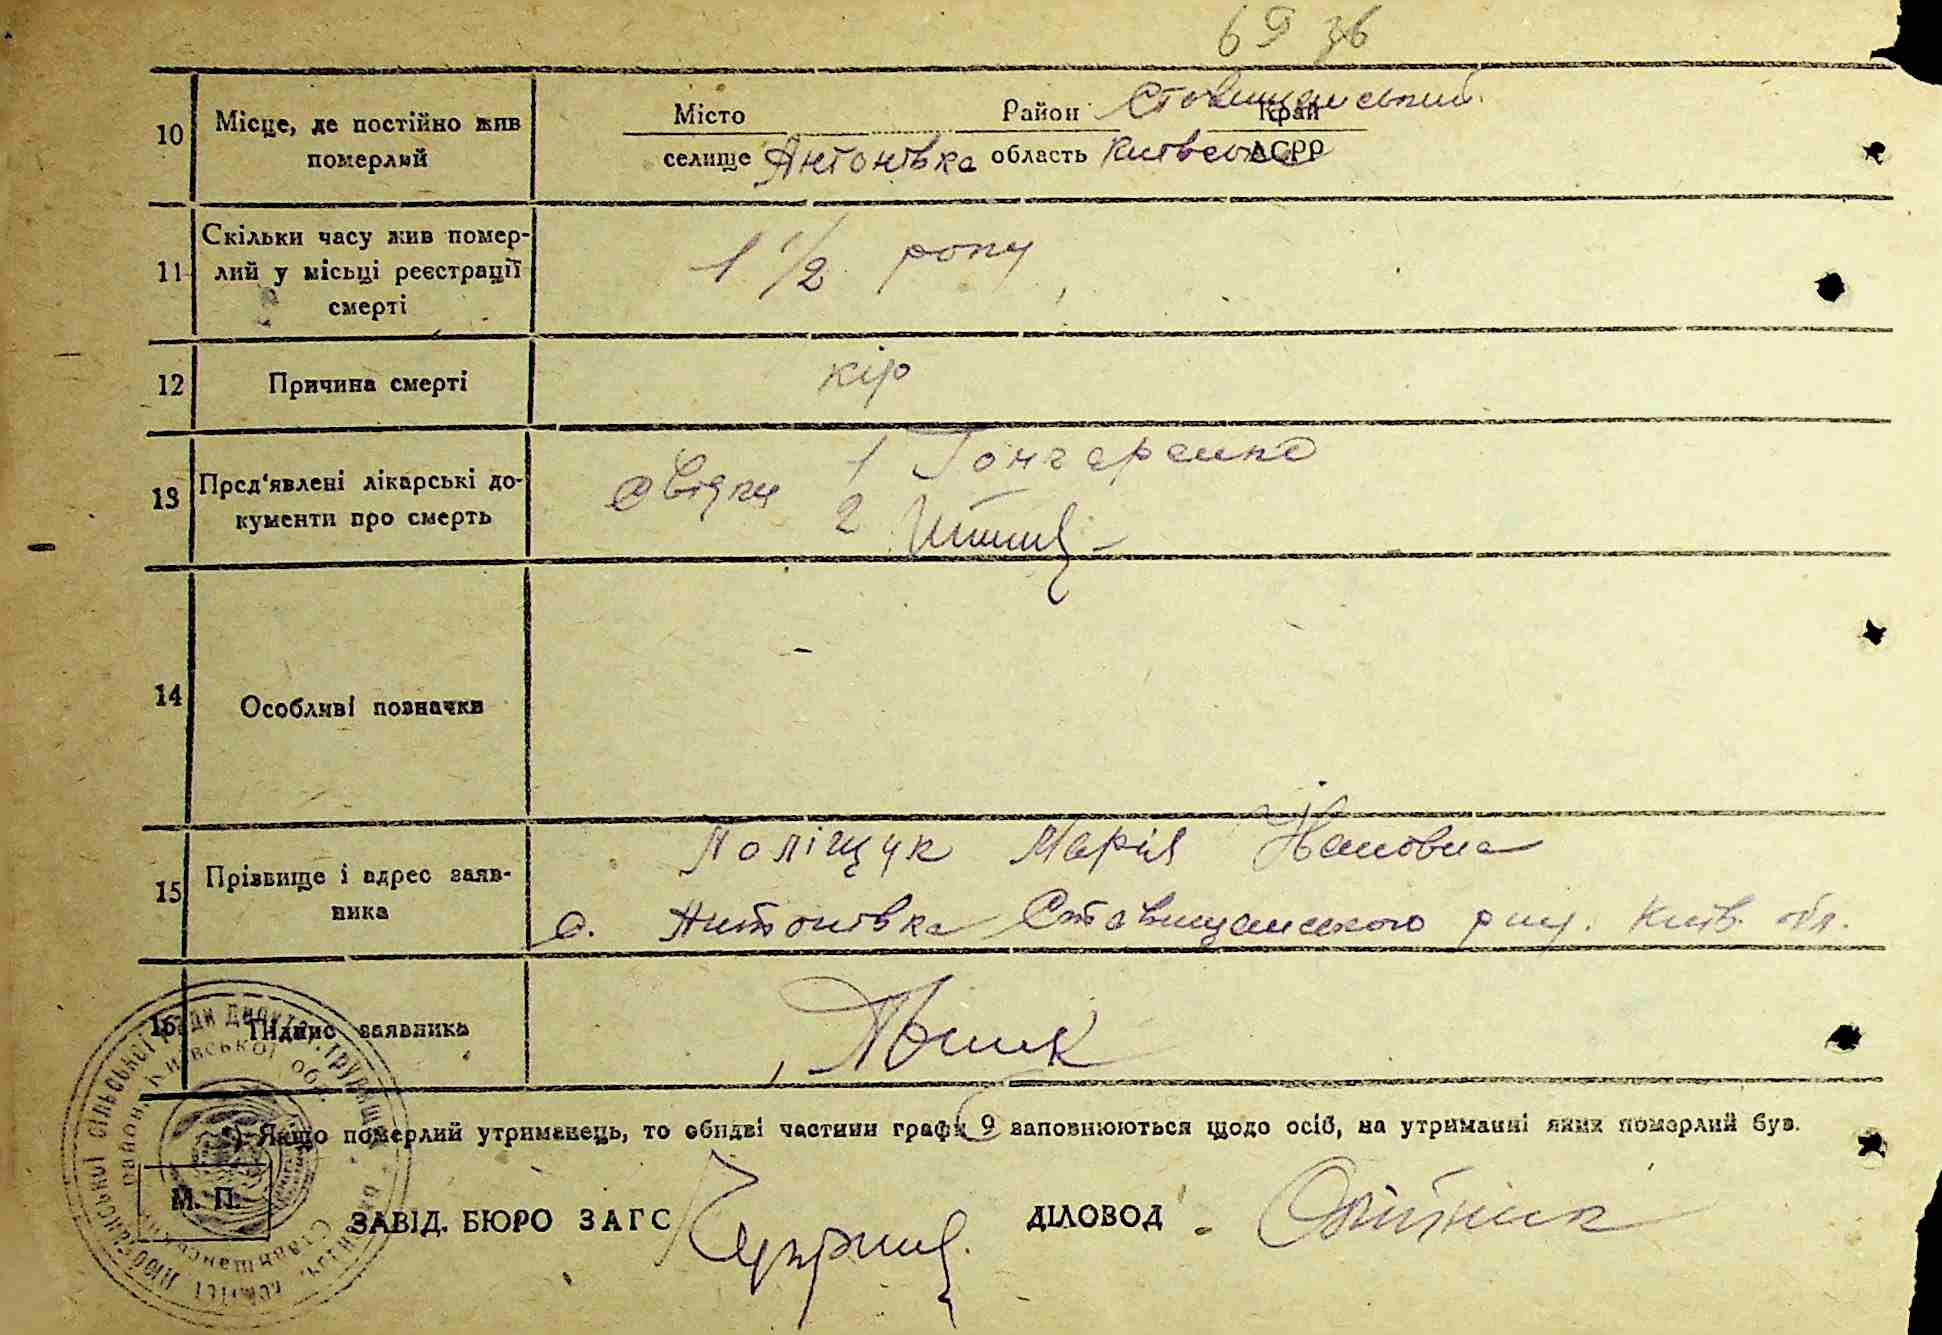 10 Місце, де постійно жив померлий
Місто Район Ставищанський Край
селище Антонівка область Київська АСРР
11 Скільки часу жив помер-
лий у місьці реєстрації
смерті
1 1/2 року
12 Причина смерті
кір
13 Пред'явлені лікарські до-
кументи про смерть
свідки 1 Гончаренко
2
14 Особливі позначки
15 Прізвище і адрес заяв-
ника
Поліщук Марія
с. Антонівка Ставищанського р-ну. Київ. обл.
16 Підпис заявника
*) Якщо померлий утриманець, то обидві частини графи 9 заповнюються щодо осіб, на утриманні яких померлий був.
М. П.
ЗАВІД. БЮРО ЗАГС
ДІЛОВОД Олійник